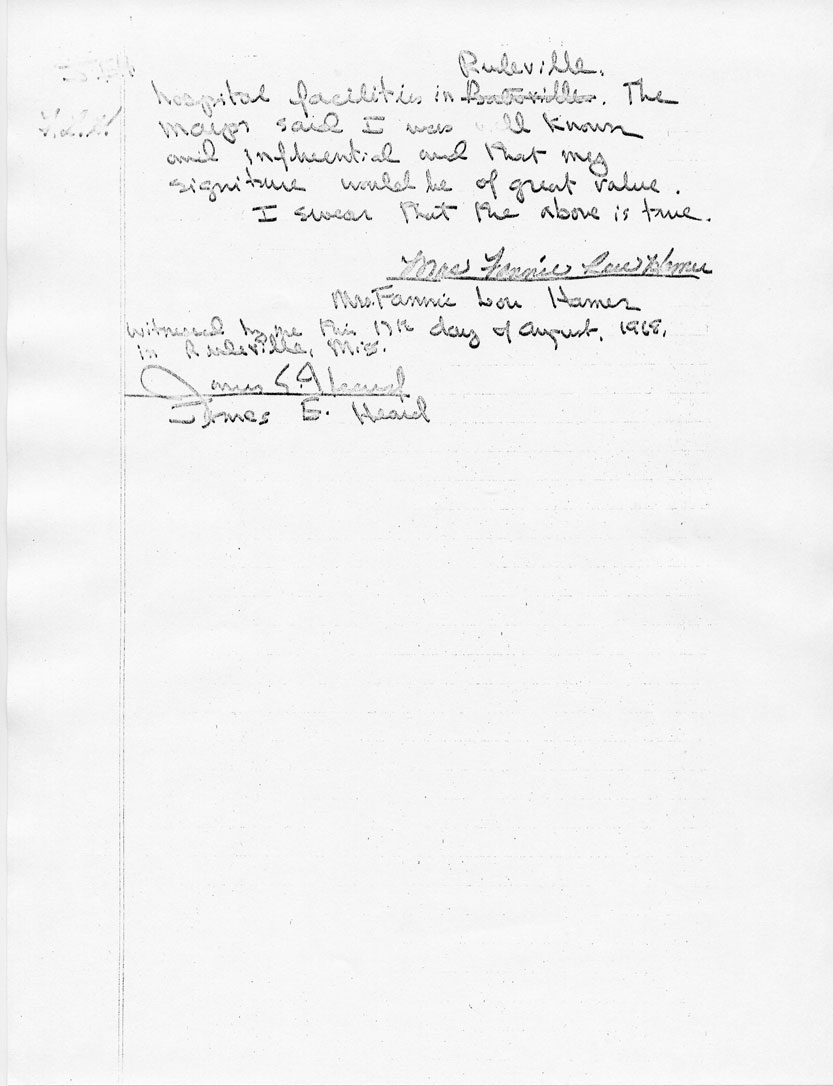 Ruleville.
hospital facilities in Batesville. The
Mayor said I was well known
and influential and that my
signiture would be of great value.
I swear that the above is true.
F.L.H
Mrs Fannie Lou Hamer
Mrs. Fannie Lou Hamer
Witnessed by me this 17th day of August, 1968,
in Ruleville, Miss.
James E. Heard
James E. Heard